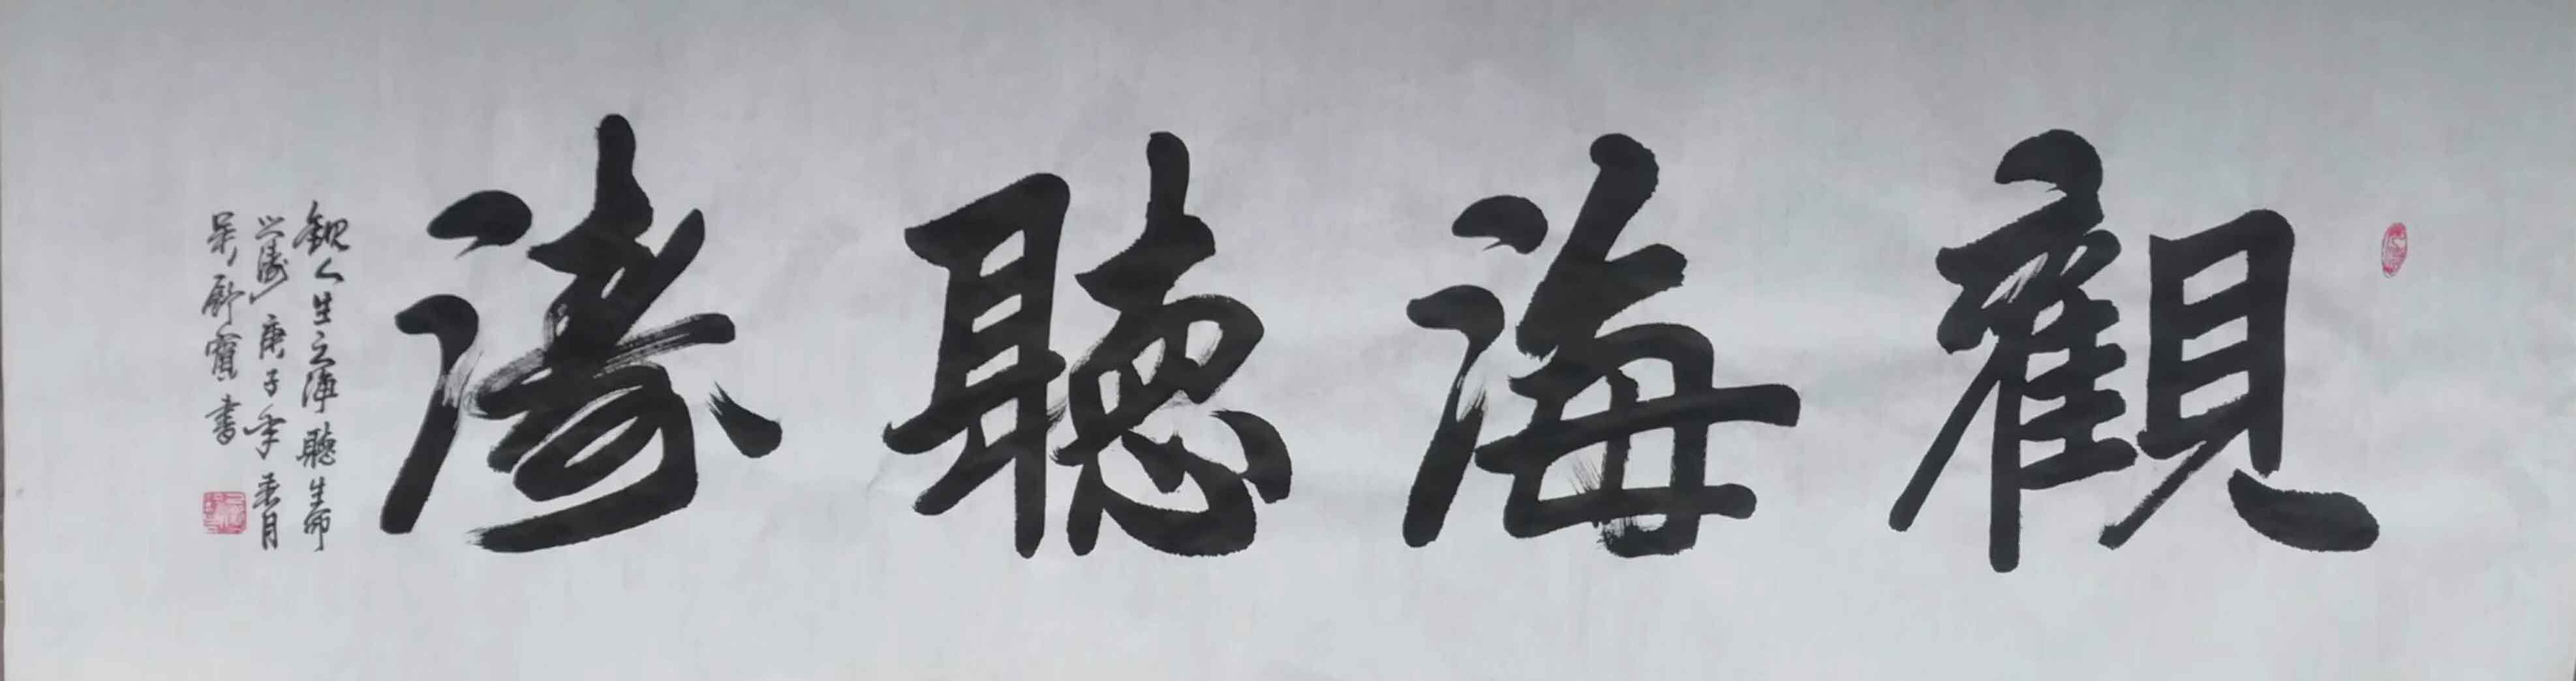 觀海聽濤
觀人生之海聽生命
之濤庚子年春月
吴舒寶書